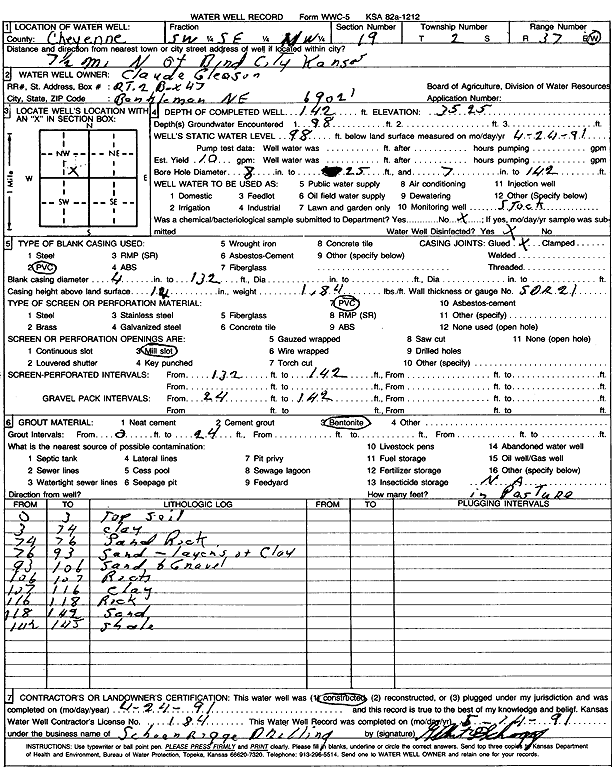 WATER WELL RECORD Form WWC-5 KSA 82a-1212
1 LOCATION OF WATER WELL: Fraction Section Number Township Number Range Number
County: Cheyenne SW ¼ SE ¼ NW ¼ 19 T 2 S R 37 E/W
Distance and direction from nearest town or city street address of well if located within city?
7½ mi N of Bird City Kansas
2 WATER WELL OWNER: Claude Gleason
RR#, St. Address, Box # : RT. 2 Box 47 Board of Agriculture, Division of Water Resources
City, State, ZIP Code : Benkleman NE 69021 Application Number:
3 LOCATE WELL'S LOCATION WITH AN "X" IN SECTION BOX: 4 DEPTH OF COMPLETED WELL 142 ft. ELEVATION: 3525
Depth(s) Groundwater Encountered 1. 98 ft. 2. ft. 3. ft.
WELL'S STATIC WATER LEVEL 98 ft. below land surface measured on mo/day/yr 4-24-91
Pump test data: Well water was ft. after hours pumping gpm
Est. Yield 10 gpm: Well water was ft. after hours pumping gpm
Bore Hole Diameter 8 in. to 25 ft., and 7 in. to 142 ft.
WELL WATER TO BE USED AS: 5 Public water supply 8 Air conditioning 11 Injection well
1 Domestic 3 Feedlot 6 Oil field water supply 9 Dewatering 12 Other (Specify below)
2 Irrigation 4 Industrial 7 Lawn and garden only 10 Monitoring well Stock
Was a chemical/bacteriological sample submitted to Department? Yes No X ; If yes, mo/day/yr sample was submitted
Water Well Disinfected? Yes X No
N
NW NE
W X E
SW SE
S
1 Mile
5 TYPE OF BLANK CASING USED: 5 Wrought iron 8 Concrete tile CASING JOINTS: Glued X Clamped
1 Steel 3 RMP (SR) 6 Asbestos-Cement 9 Other (specify below) Welded
2 PVC 4 ABS 7 Fiberglass Threaded
Blank casing diameter 4 in. to 132 ft., Dia in. to ft., Dia in. to ft.
Casing height above land surface 12 in., weight 1.84 lbs./ft. Wall thickness or gauge No. SDR 21
TYPE OF SCREEN OR PERFORATION MATERIAL: 7 PVC 10 Asbestos-cement
1 Steel 3 Stainless steel 5 Fiberglass 8 RMP (SR) 11 Other (specify)
2 Brass 4 Galvanized steel 6 Concrete tile 9 ABS 12 None used (open hole)
SCREEN OR PERFORATION OPENINGS ARE: 5 Gauzed wrapped 8 Saw cut 11 None (open hole)
1 Continuous slot 3 Mill slot 6 Wire wrapped 9 Drilled holes
2 Louvered shutter 4 Key punched 7 Torch cut 10 Other (specify)
SCREEN-PERFORATED INTERVALS: From 132 ft. to 142 ft., From ft. to ft.
From ft. to ft., From ft. to ft.
GRAVEL PACK INTERVALS: From 24 ft. to 142 ft., From ft. to ft.
From ft. to ft., From ft. to ft.
6 GROUT MATERIAL: 1 Neat cement 2 Cement grout 3 Bentonite 4 Other
Grout Intervals: From 0 ft. to 24 ft., From ft. to ft., From ft. to ft.
What is the nearest source of possible contamination: 10 Livestock pens 14 Abandoned water well
1 Septic tank 4 Lateral lines 7 Pit privy 11 Fuel storage 15 Oil well/Gas well
2 Sewer lines 5 Cess pool 8 Sewage lagoon 12 Fertilizer storage 16 Other (specify below)
3 Watertight sewer lines 6 Seepage pit 9 Feedyard 13 Insecticide storage N.A.
Direction from well? How many feet? in Pasture
FROM TO LITHOLOGIC LOG FROM TO PLUGGING INTERVALS
0 3 Top Soil
3 74 Clay
74 76 Sand Rock
76 93 Sand - layers of Clay
93 106 Sand & Gravel
106 107 Rock
107 116 Clay
116 118 Rock
118 142 Sand
142 145 Shale
7 CONTRACTOR'S OR LANDOWNER'S CERTIFICATION: This water well was (1) constructed, (2) reconstructed, or (3) plugged under my jurisdiction and was
completed on (mo/day/year) 4-24-91 and this record is true to the best of my knowledge and belief. Kansas
Water Well Contractor's License No. 184 This Water Well Record was completed on (mo/day/yr) 5-14-91
under the business name of Schoenrogge Drilling by (signature)
INSTRUCTIONS: Use typewriter or ball point pen. PLEASE PRESS FIRMLY and PRINT clearly. Please fill in blanks, underline or circle the correct answers. Send top three copies to Kansas Department
of Health and Environment, Bureau of Water Protection, Topeka, Kansas 66620-7320. Telephone: 913-296-5514. Send one to WATER WELL OWNER and retain one for your records.